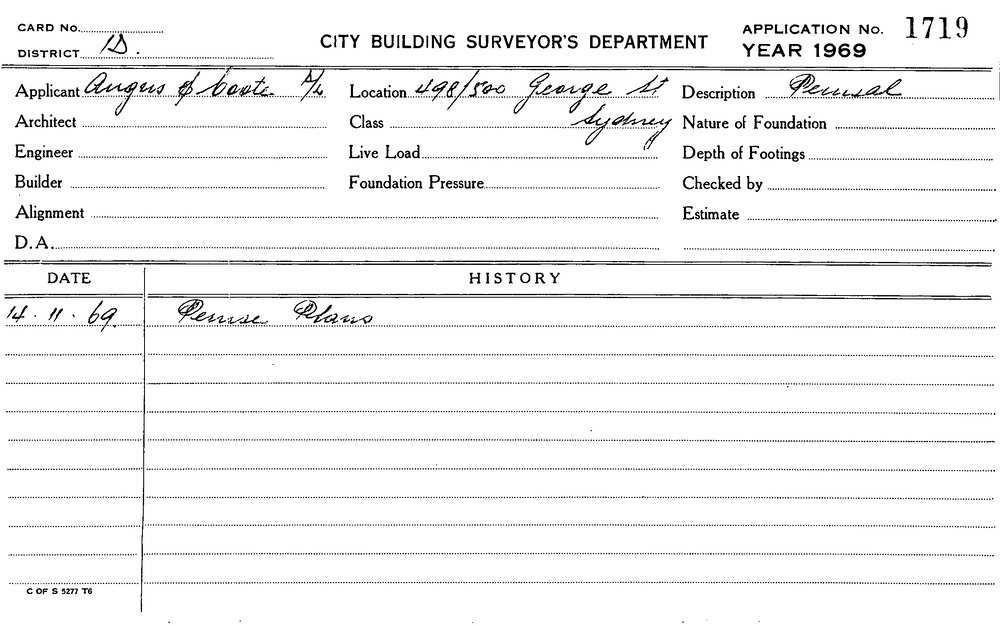 CARD No.
DISTRICT D.
CITY BUILDING SURVEYOR'S DEPARTMENT
APPLICATION No. 1719
YEAR 1969
Applicant Angus & Coote P/L
Location 498/500 George St
Sydney
Description Perusal
Architect
Class
Nature of Foundation
Engineer
Live Load
Depth of Footings
Builder
Foundation Pressure
Checked by
Alignment
Estimate
D.A.
DATE HISTORY
14.11.69. Peruse Plans
C OF S 5277 T6